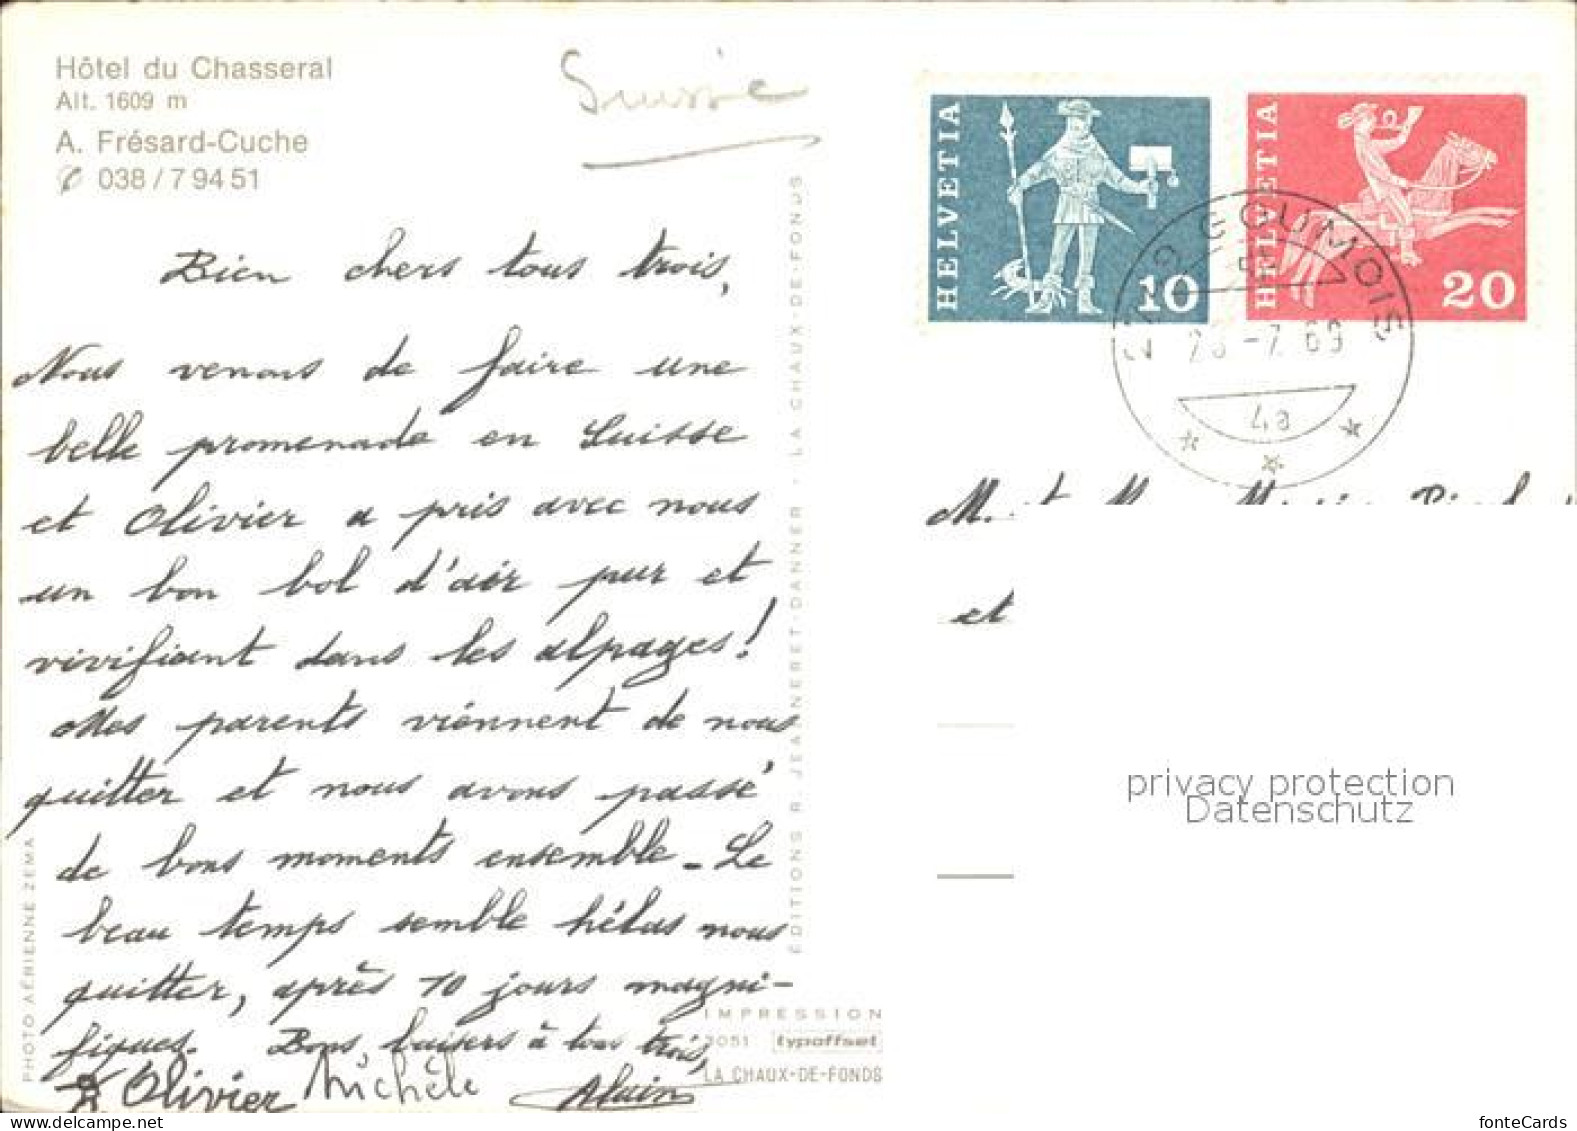 Hôtel du Chasseral
Alt. 1609 m
A. Frésard-Cuche
✆ 038 / 7 94 51
Suisse
Bien chers tous trois,
Nous venons de faire une
belle promenade en Suisse
et Olivier a pris avec nous
un bon bol d'air pur et
vivifiant dans les alpages!
Mes parents viennent de nous
quitter et nous avons passé
de bons moments ensemble - Le
beau temps semble hélas nous
quitter, après 10 jours magni-
fiques. Bons baisers à tous trois,
Olivier Michèle Alain
PHOTO AÉRIENNE ZEMA
ÉDITIONS R. JEANNERET-DANNER · LA CHAUX-DE-FONDS
IMPRESSION
3051 typoffset
LA CHAUX-DE-FONDS
HELVETIA
10
HELVETIA
20
GOUMOIS
-7 69
4a
M. et
et
privacy protection
Datenschutz
fonteCards